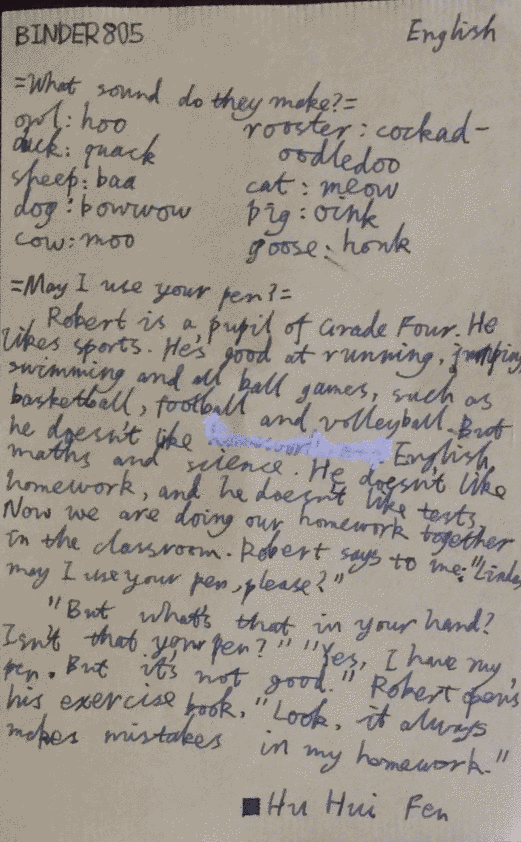 BINDER805 English
=What sound do they make?=
owl: hoo
duck: quack
sheep: baa
dog: bowwow
cow: moo
rooster: cockad-
oodledoo
cat: meow
pig: oink
goose: honk
=May I use your pen?=
Robert is a pupil of Grade Four. He
likes sports. He's good at running, jumping,
swimming and all ball games, such as
basketball, football and volleyball. But
he doesn't like English,
maths and science. He doesn't like
homework, and he doesn't like tests.
Now we are doing our homework together
in the classroom. Robert says to me: "Linda,
may I use your pen, please?"
"But what's that in your hand?
Isn't that your pen?" "Yes, I have my
pen. But it's not good." Robert opens
his exercise book, "Look, it always
makes mistakes in my homework."
■Hu Hui Fen